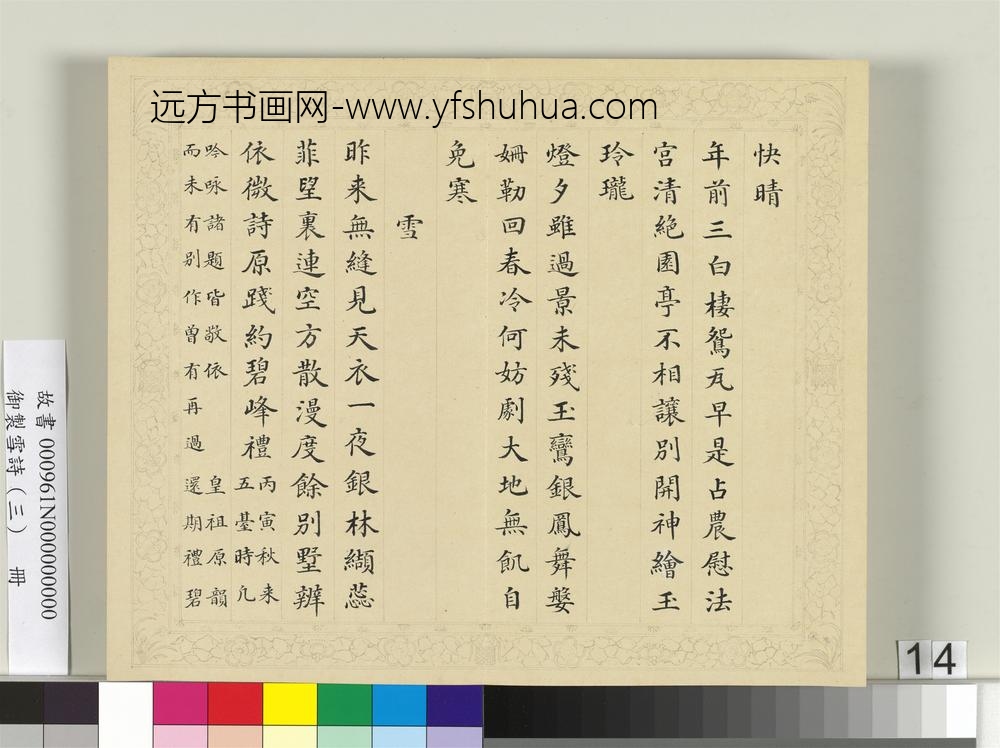 远方书画网-www.yfshuhua.com
快晴
年前三白棲鴛瓦早是占農慰法
宫清絶園亭不相讓別開神繪玉
玲瓏
燈夕雖過景未殘玉鸞銀鳳舞媻
姍勒回春冷何妨劇大地無飢自
免寒
雪
昨来無縫見天衣一夜銀林纈蕊
菲望裏連空方散漫度餘別墅辨
依微詩原踐約碧峰禮丙寅秋来
五臺時凡
吟咏諸題皆敬依皇祖原韻
而未有别作曽有再過還期禮碧
故書 000961N000000000
御製雪詩(三) 冊
14